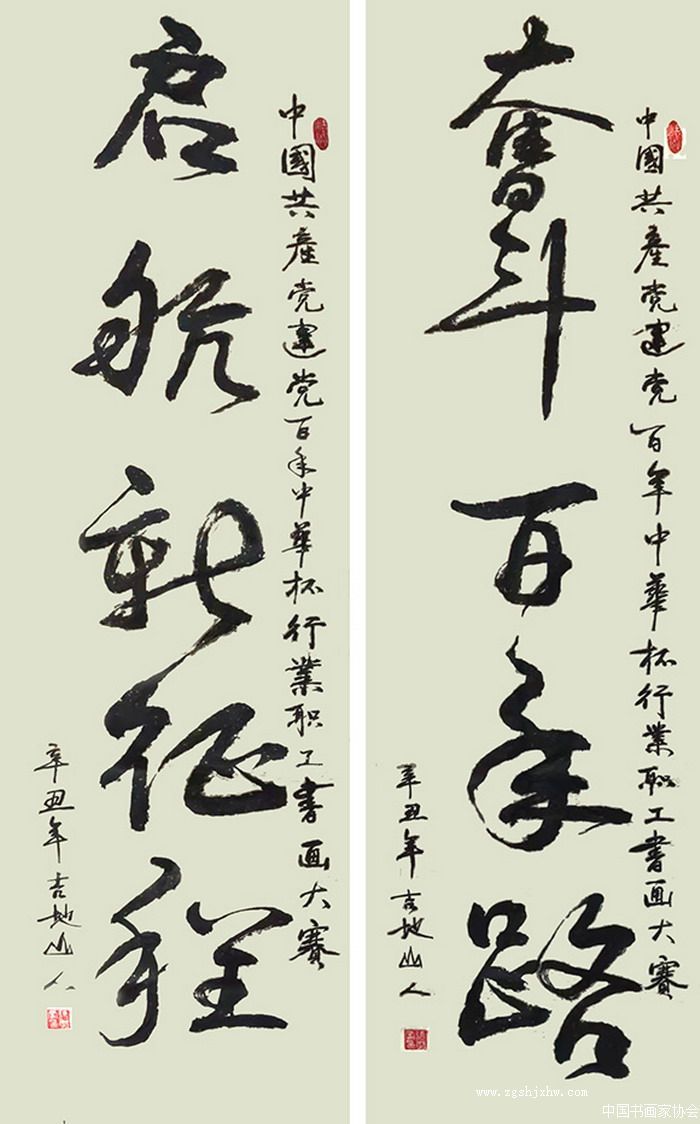 奋斗百年路
中國共產党建党百年中華杯行業职工書画大赛
辛丑年吉地山人
启航新征程
中國共產党建党百年中華杯行業职工書画大赛
辛丑年吉地山人
www.zgshjxhw.com
中国书画家协会